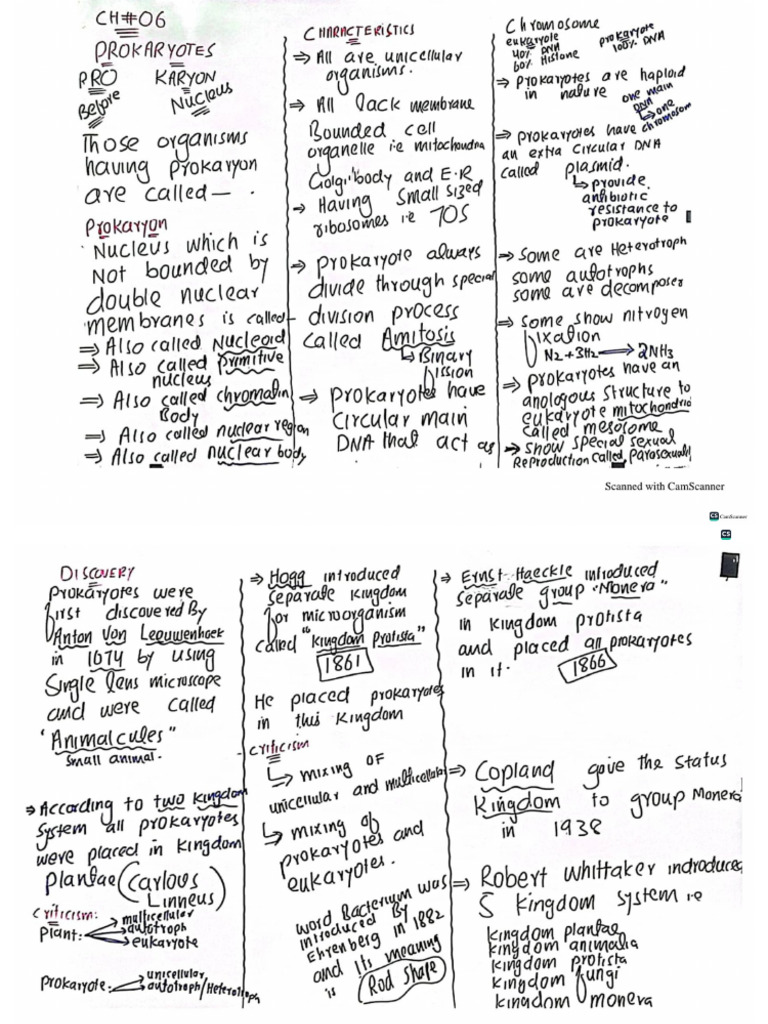 CH#06
PROKARYOTES
PRO KARYON
Before Nucleus
Those organisms
having prokaryon
are called— .
Prokaryon
Nucleus which is
Not bounded by
double nuclear
membranes is called-
⇒ Also called Nucleoid
⇒ Also called primitive
nucleus
⇒ Also called chromatin
Body
⇒ Also called nuclear region
⇒ Also called nuclear body
CHARACTERISTICS
⇒ All are unicellular
organisms.
→ All lack membrane
Bounded cell
organelle i.e mitochondria
Golgi body and E.R
→ Having small sized
ribosomes i.e 70S
→ prokaryote always
divide through special
division process
called Amitosis
↳ Binary
fission
→ prokaryotes have
circular main
DNA that act as
Chromosome
eukaryote
40% DNA
60% Histone
prokaryote
100% DNA
→ prokaryotes are haploid
in nature
one main
DNA
↳ one
chromosom
→ prokaryotes have
an extra circular DNA
called plasmid.
↳ provide
antibiotic
resistance to
prokaryote
→ some are Heterotroph
some autotrophs
some are decomposer
→ some show nitrogen
fixation
N2+3H2 → 2NH3
→ prokaryotes have an
anologous structure to
eukaryote mitochondria
called mesosome
→ show special sexual
Reproduction called parasexuality
Scanned with CamScanner
CS CamScanner
CS
DISCOVERY
prokaryotes were
first discovered By
Anton Von Leeuwenhoek
in 1674 by using
single lens microscope
and were called
"Animalcules"
small animal.
→ According to two kingdom
system all prokaryotes
were placed in kingdom
plantae (Carlous
Linneus)
Criticism:
Plant: multicellular
autotroph
eukaryote
prokaryote: unicellular
autotroph/Heterotroph
→ Hogg introduced
separate kingdom
for microorganism
called "kingdom protista"
1861
He placed prokaryotes
in this kingdom
criticism
↳ mixing of
unicellular and multicellular
↳ mixing of
prokaryotes and
eukaryotes.
word Bacterium was
introduced By
Ehrenberg in 1882
and its meaning
is Rod shape
→ Ernst Haeckle introduced
separate group "Monera"
in kingdom protista
and placed all prokaryotes
in it. 1866
⇒ Copland gave the status
kingdom to group Monera
in 1938
⇒ Robert whittaker indroduced
5 kingdom system i.e
kingdom plantae
kingdom animalia
kingdom protista
kingdom fungi
kingdom monera